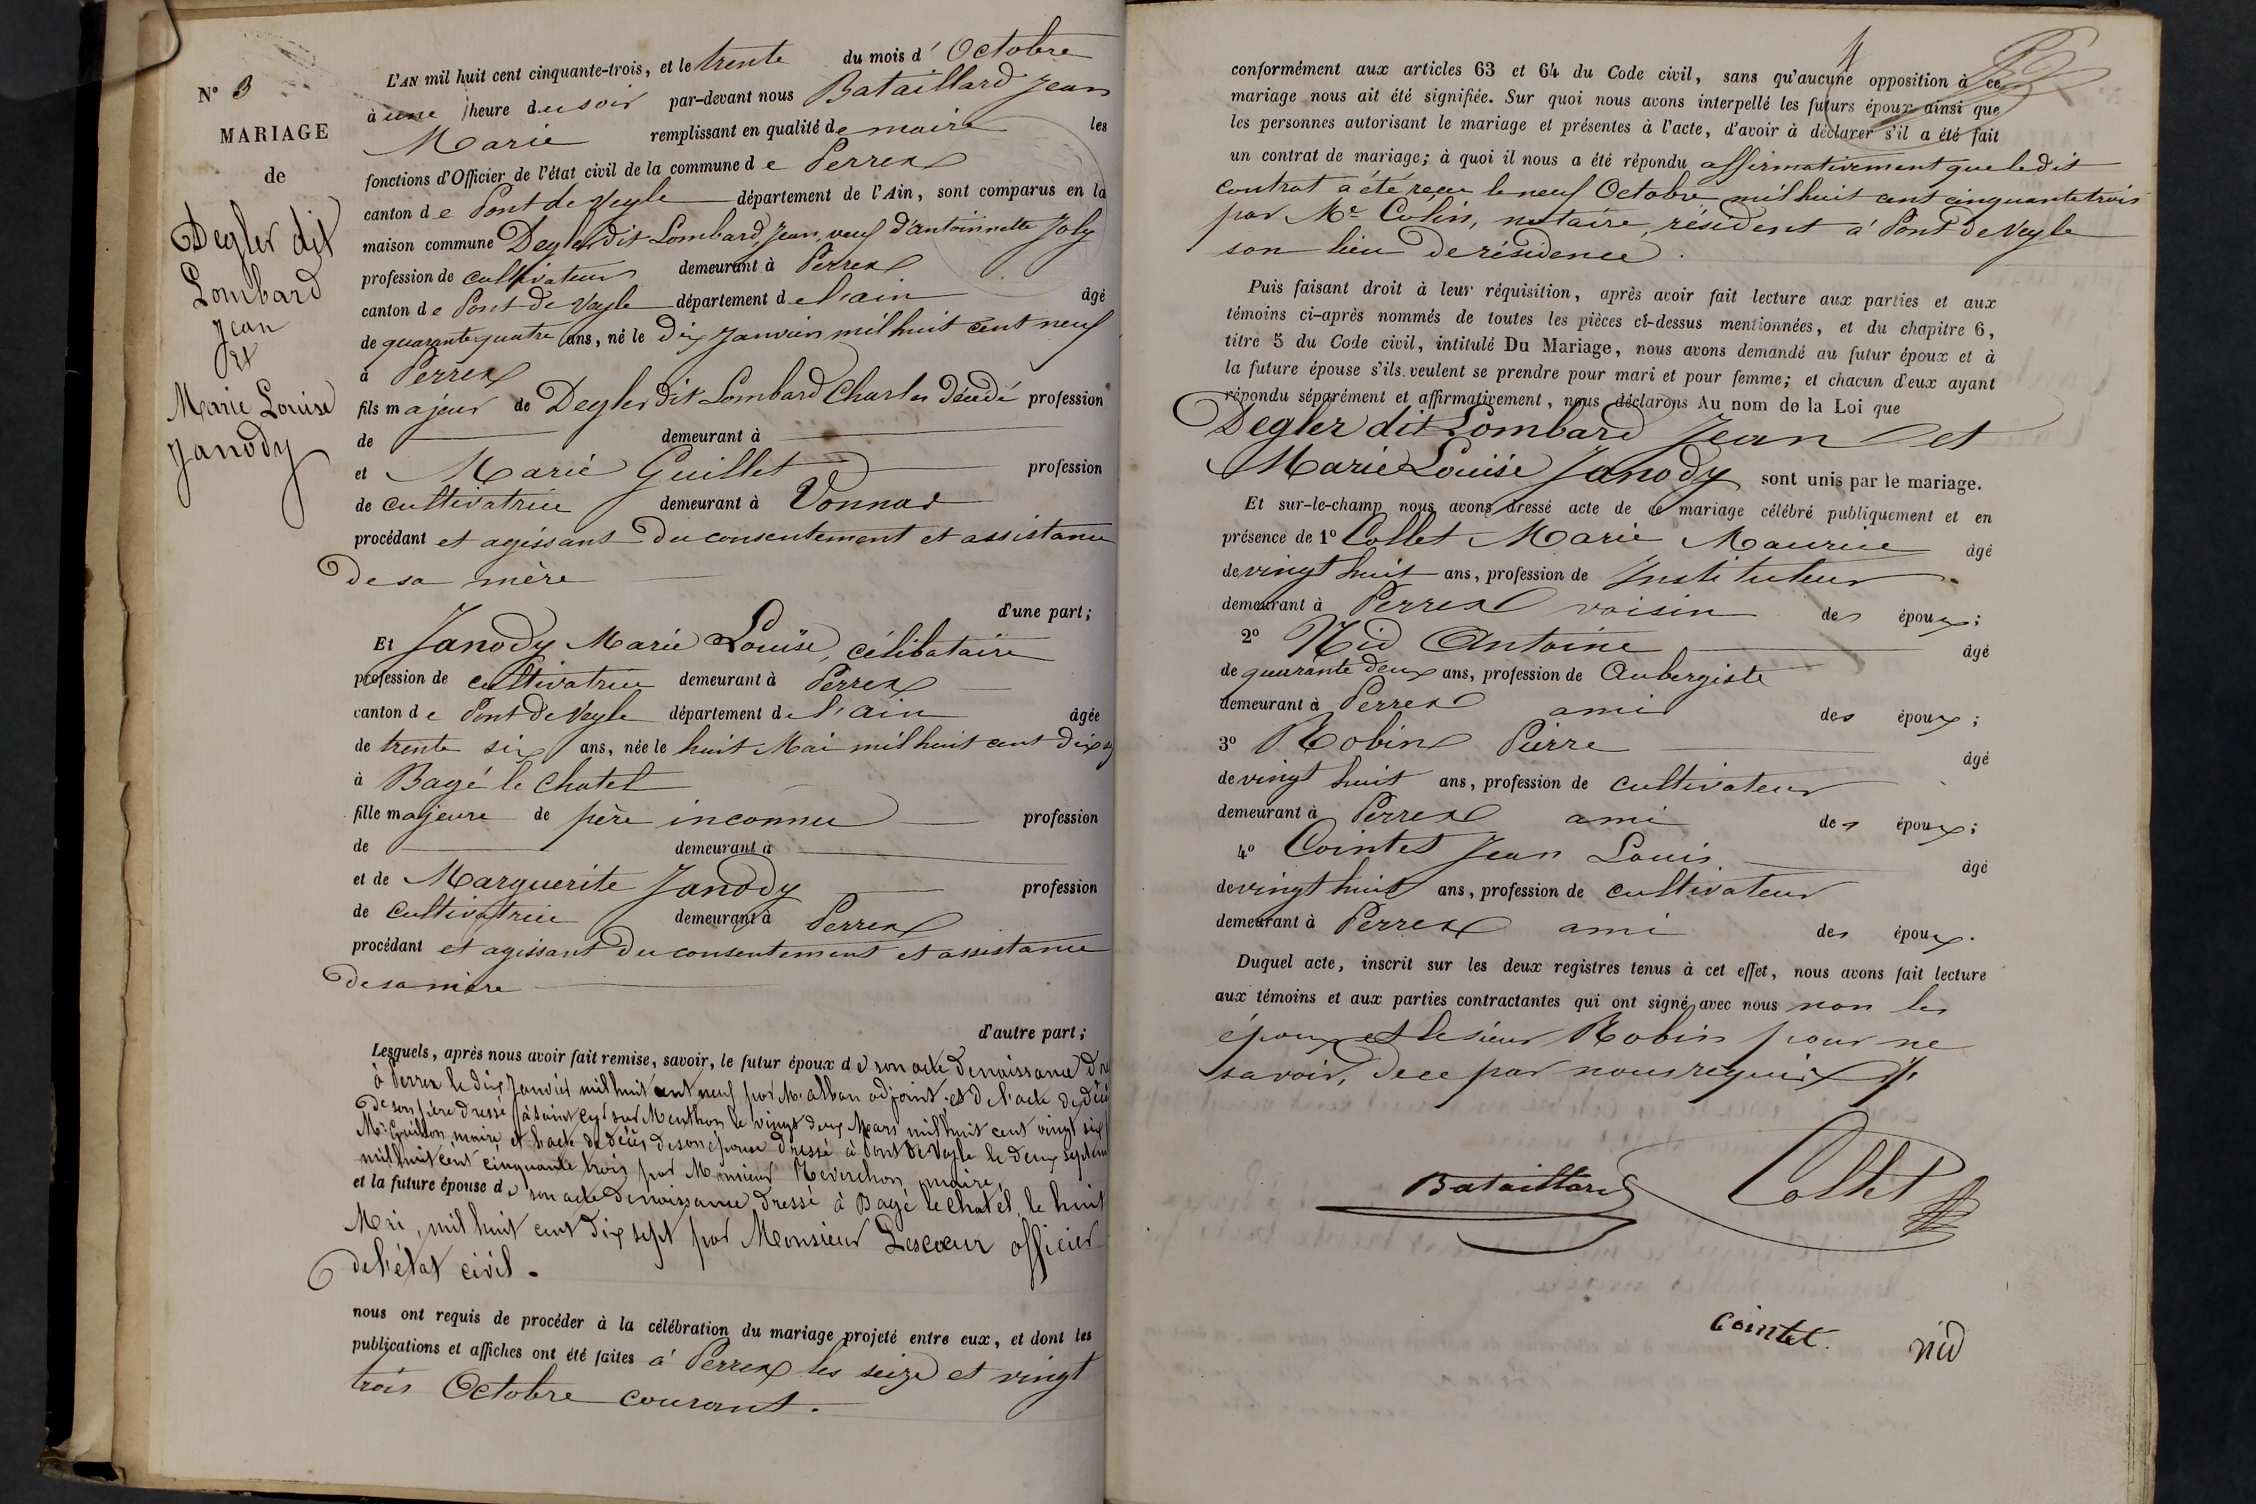 N° 3
MARIAGE
de
Degler dit
Lombard
Jean
Et
Marie Louise
Janody
L'AN mil huit cent cinquante-trois, et le trente du mois d' Octobre
à une heure du soir par-devant nous Bataillard Jean
Marie remplissant en qualité de maire les
fonctions d'Officier de l'état civil de la commune de Perrex
canton de Pont de Veyle département de l'Ain, sont comparus en la
maison commune Degler dit Lombard Jean, veuf d'antoinnette Joly
profession de cultivateur demeurant à Perrex
canton de Pont de Vayle département de l'ain âgé
de quarante quatre ans, né le dix Janvier mil huit cent neuf
à Perrex
fils majeur de Degler dit Lombard Charles décédé profession
de demeurant à
et Marie Guillet profession
de cultivatrice demeurant à Vonnas
procédant et agissant du consentement et assistance
de sa mère
d'une part;
Et Janody Marie Louise, célibataire
profession de cultivatrice demeurant à Perrex
canton de Pont de Veyle département de l'ain âgée
de trente six ans, née le huit Mai mil huit cent dix
à Bagé le chatel
fille majeure de père inconnu profession
de demeurant à
et de Marguerite Janody profession
de cultivatrice demeurant à Perrex
procédant et agissant du consentement et assistance
de sa mère
d'autre part;
Lesquels, après nous avoir fait remise, savoir, le futur époux de son acte de naissance
à Perrex le dix Janvier mil huit cent neuf par Mr alban adjoint et de l'acte de
de son père dressé à saint Cyr sur Menthon le vingt deux Mars mil huit cent vingt six
Mr Guillon, maire et l'acte de décès de son épouse dressé à Pont de Vayle le deux
mil huit cent cinquante trois par Monsieur Reverchon, maire,
et la future épouse de son acte de naissance dressé à Bagé le chatel, le huit
Mai, mil huit cent dix sept par Monsieur Lescoeur officier
de l'état civil.
nous ont requis de procéder à la célébration du mariage projeté entre eux, et dont les
publications et affiches ont été faites à Perrex les seize et vingt
trois Octobre courant.
conformément aux articles 63 et 64 du Code civil, sans qu'aucune opposition à ce
mariage nous ait été signifiée. Sur quoi nous avons interpellé les futurs époux ainsi que
les personnes autorisant le mariage et présentes à l'acte, d'avoir à déclarer s'il a été fait
un contrat de mariage; à quoi il nous a été répondu affirmativement que ledit
contrat a été reçu le neuf Octobre mil huit cent cinquante trois
par Me Colin, notaire, résident à Pont de Veyle
son lieu de résidence.
Puis faisant droit à leur réquisition, après avoir fait lecture aux parties et aux
témoins ci-après nommés de toutes les pièces ci-dessus mentionnées, et du chapitre 6,
titre 5 du Code civil, intitulé Du Mariage, nous avons demandé au futur époux et à
la future épouse s'ils veulent se prendre pour mari et pour femme; et chacun d'eux ayant
répondu séparément et affirmativement, nous déclarons Au nom de la Loi que
Degler dit Lombard Jean et
Marie Louise Janody sont unis par le mariage.
Et sur-le-champ nous avons dressé acte de ce mariage célébré publiquement et en
présence de 1° Collet Marie Maurice âgé
de vingt huit ans, profession de Instituteur
demeurant à Perrex voisin des époux;
2° Nid Antoine âgé
de quarante deux ans, profession de Aubergiste
demeurant à Perrex ami des époux;
3° Robin Pierre âgé
de vingt huit ans, profession de cultivateur
demeurant à Perrex ami des époux;
4° Cointet Jean Louis âgé
de vingt huit ans, profession de cultivateur
demeurant à Perrex ami des époux.
Duquel acte, inscrit sur les deux registres tenus à cet effet, nous avons fait lecture
aux témoins et aux parties contractantes qui ont signé avec nous non les
époux et le sieur Robin pour ne
savoir, de ce par nous requis
Bataillard Collet
Cointet. nid